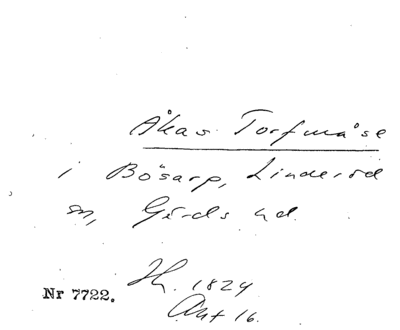 Åkas Torfmåse
i Bösarp, Linderöd
sn, Gärds hd.
Jh. 1824
Nr 7722.
Akt 16.